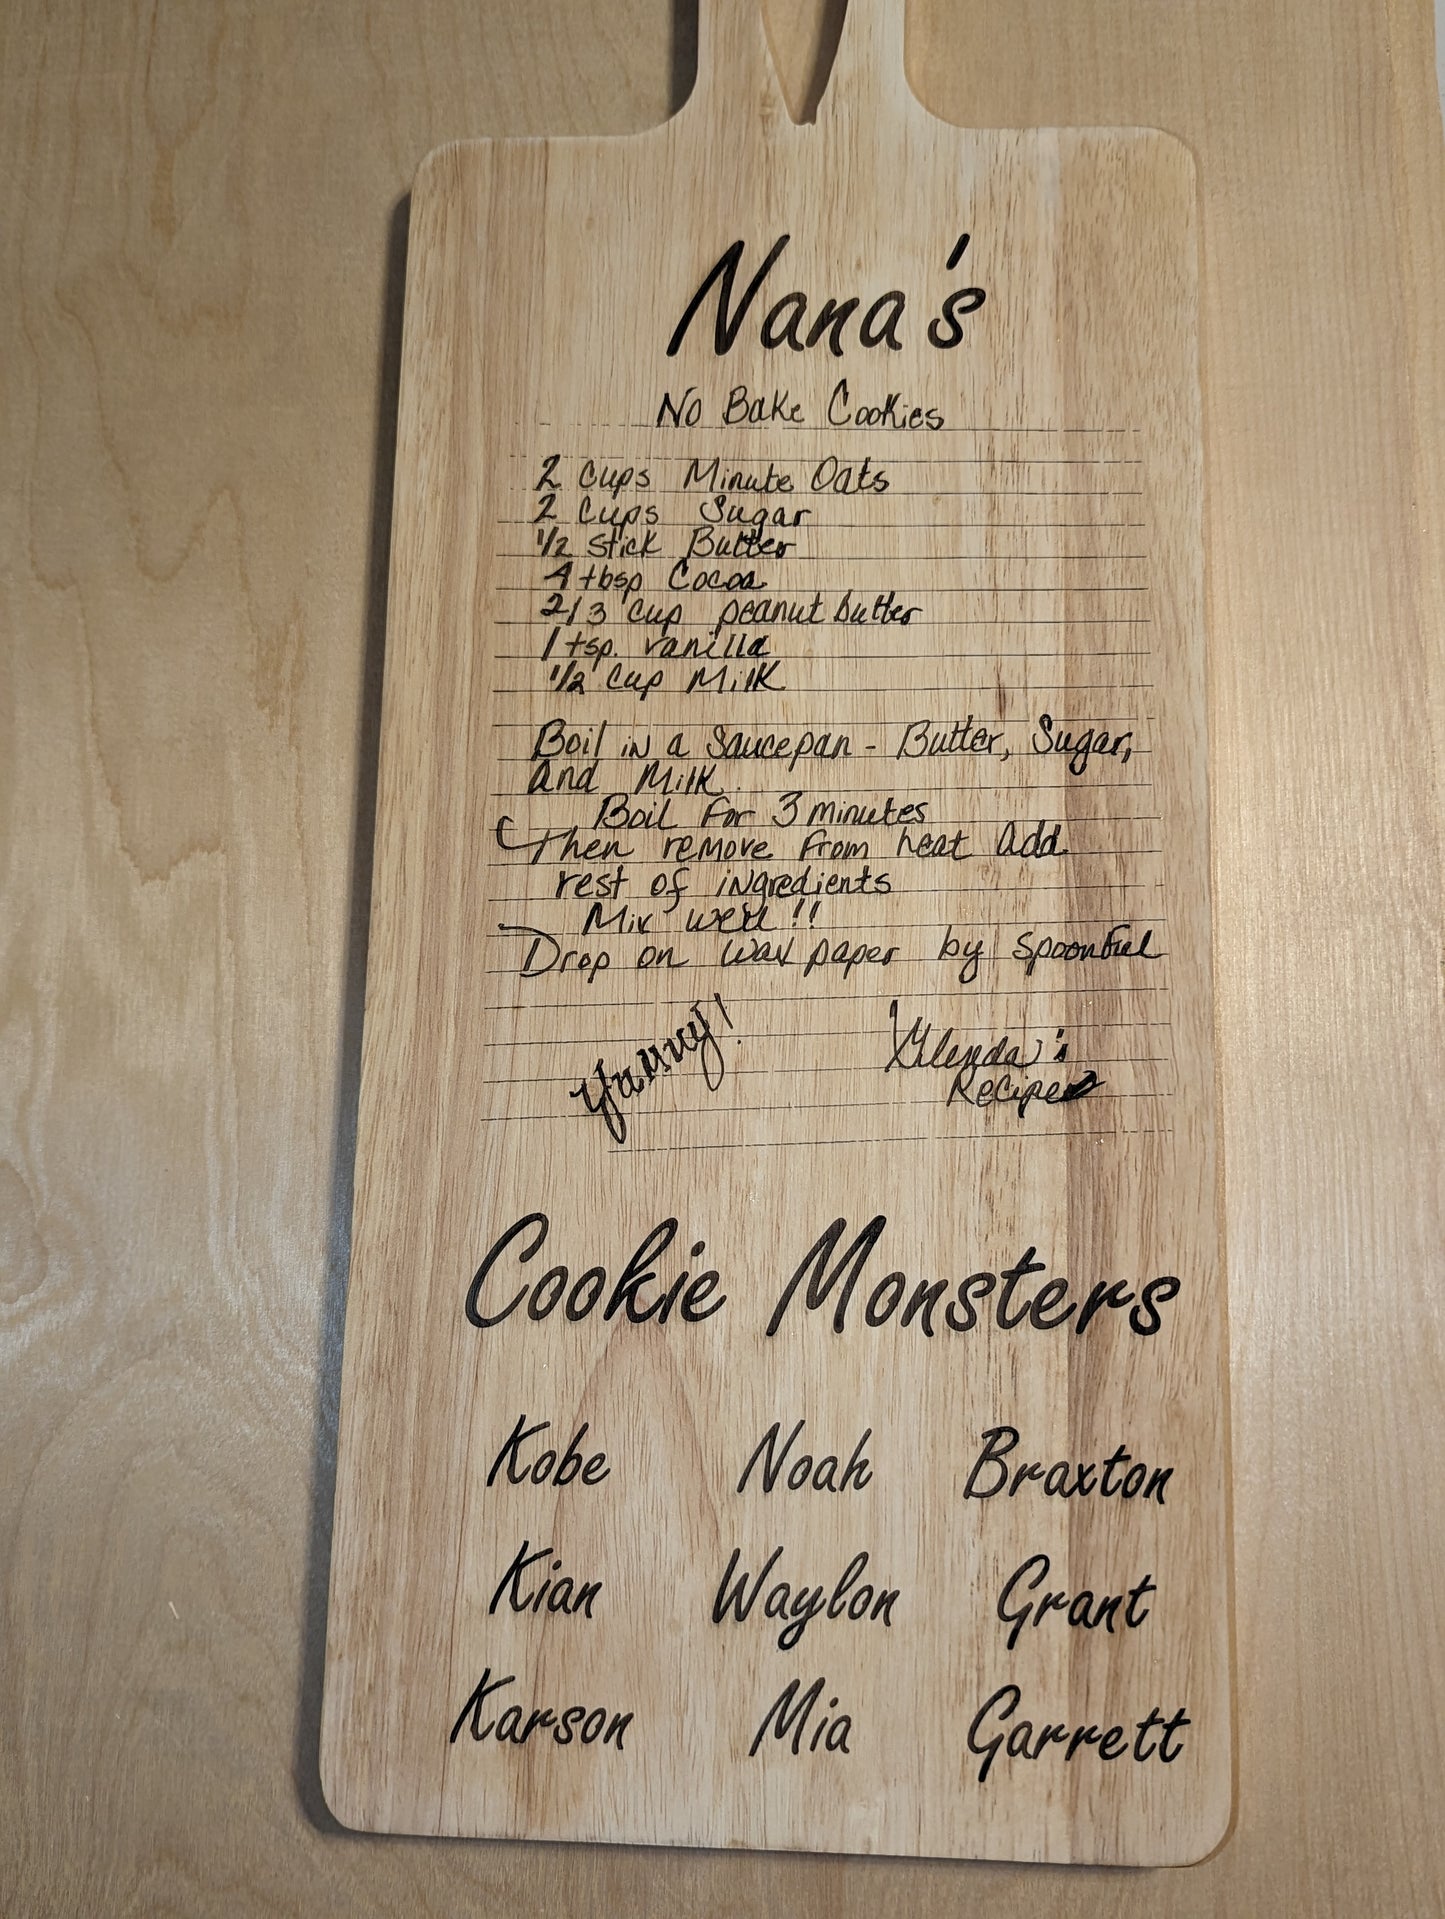 Nana's
No Bake Cookies
2 cups Minute Oats
2 Cups Sugar
1/2 stick Butter
4 tbsp Cocoa
2/3 cup peanut butter
1 tsp. vanilla
1/2 cup Milk
Boil in a Saucepan - Butter, Sugar,
and Milk.
Boil for 3 minutes
then remove from heat add
rest of ingredients
Mix well!!
Drop on wax paper by spoonful
Yummy!
Glenda's
Recipe
Cookie Monsters
Kobe Noah Braxton
Kian Waylon Grant
Karson Mia Garrett